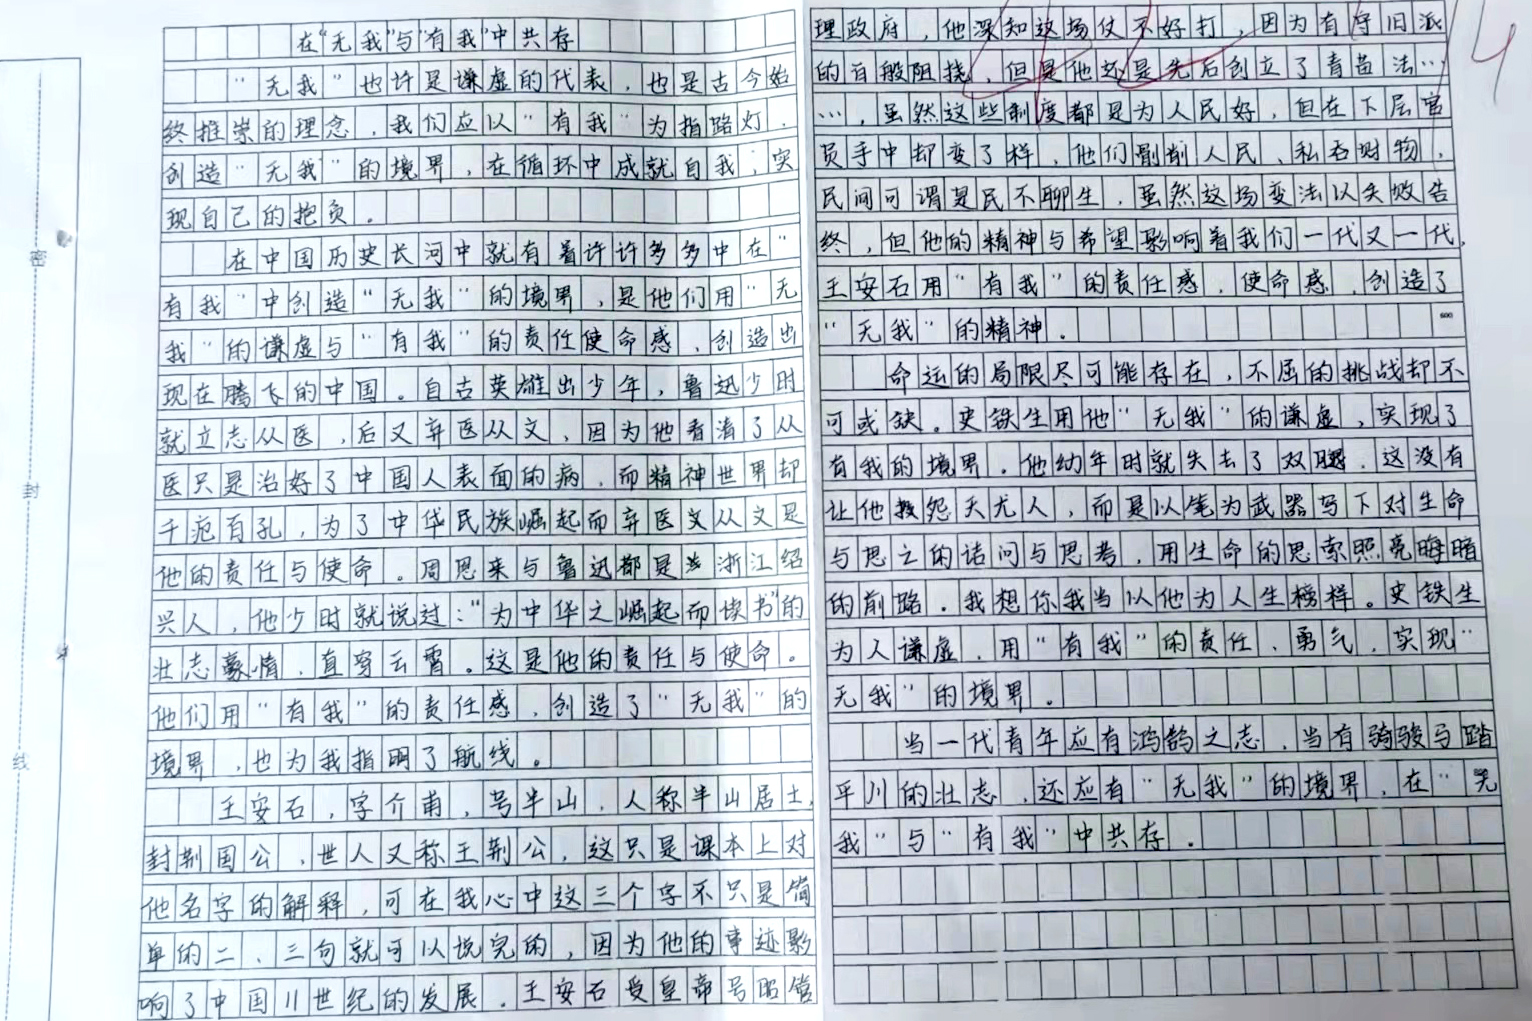 在“无我”与“有我”中共存
“无我”也许是谦虚的代表，也是古今始
终推崇的理念，我们应以“有我”为指路灯，
创造“无我”的境界，在循环中成就自我，实
现自己的抱负。
在中国历史长河中就有着许许多多中在“
有我”中创造“无我”的境界，是他们用“无
我”的谦虚与“有我”的责任使命感，创造出
现在腾飞的中国。自古英雄出少年，鲁迅少时
就立志从医，后又弃医从文，因为他看清了从
医只是治好了中国人表面的病，而精神世界却
千疮百孔，为了中华民族崛起而弃医文从文是
他的责任与使命。周恩来与鲁迅都是浙江绍
兴人，他少时就说过：“为中华之崛起而读书”的
壮志豪情，直穿云霄。这是他的责任与使命。
他们用“有我”的责任感，创造了“无我”的
境界，也为我指明了航线。
王安石，字介甫，号半山，人称半山居士，
封荆国公，世人又称王荆公，这只是课本上对
他名字的解释，可在我心中这三个字不只是简
单的二、三句就可以说完的，因为他的事迹影
响了中国11世纪的发展，王安石受皇帝号昭管
理政府，他深知这场仗不好打，因为有守旧派
的百般阻挠，但是他还是先后创立了青苗法…
…，虽然这些制度都是为人民好，但在下层官
员手中却变了样，他们剥削人民、私吞财物，
民间可谓是民不聊生，虽然这场变法以失败告
终，但他的精神与希望影响着我们一代又一代，
王安石用“有我”的责任感，使命感，创造了
“无我”的精神。
600
命运的局限尽可能存在，不屈的挑战却不
可或缺。史铁生用他“无我”的谦虚，实现了
有我的境界，他幼年时就失去了双腿，这没有
让他怨天尤人，而是以笔为武器写下对生命
与思之的诘问与思考，用生命的思索照亮晦暗
的前路。我想你我当以他为人生榜样。史铁生
为人谦虚，用“有我”的责任、勇气，实现“
无我”的境界。
当一代青年应有鸿鹄之志，当有骑骏马踏
平川的壮志，还应有“无我”的境界，在“无
我”与“有我”中共存。
密
封
线